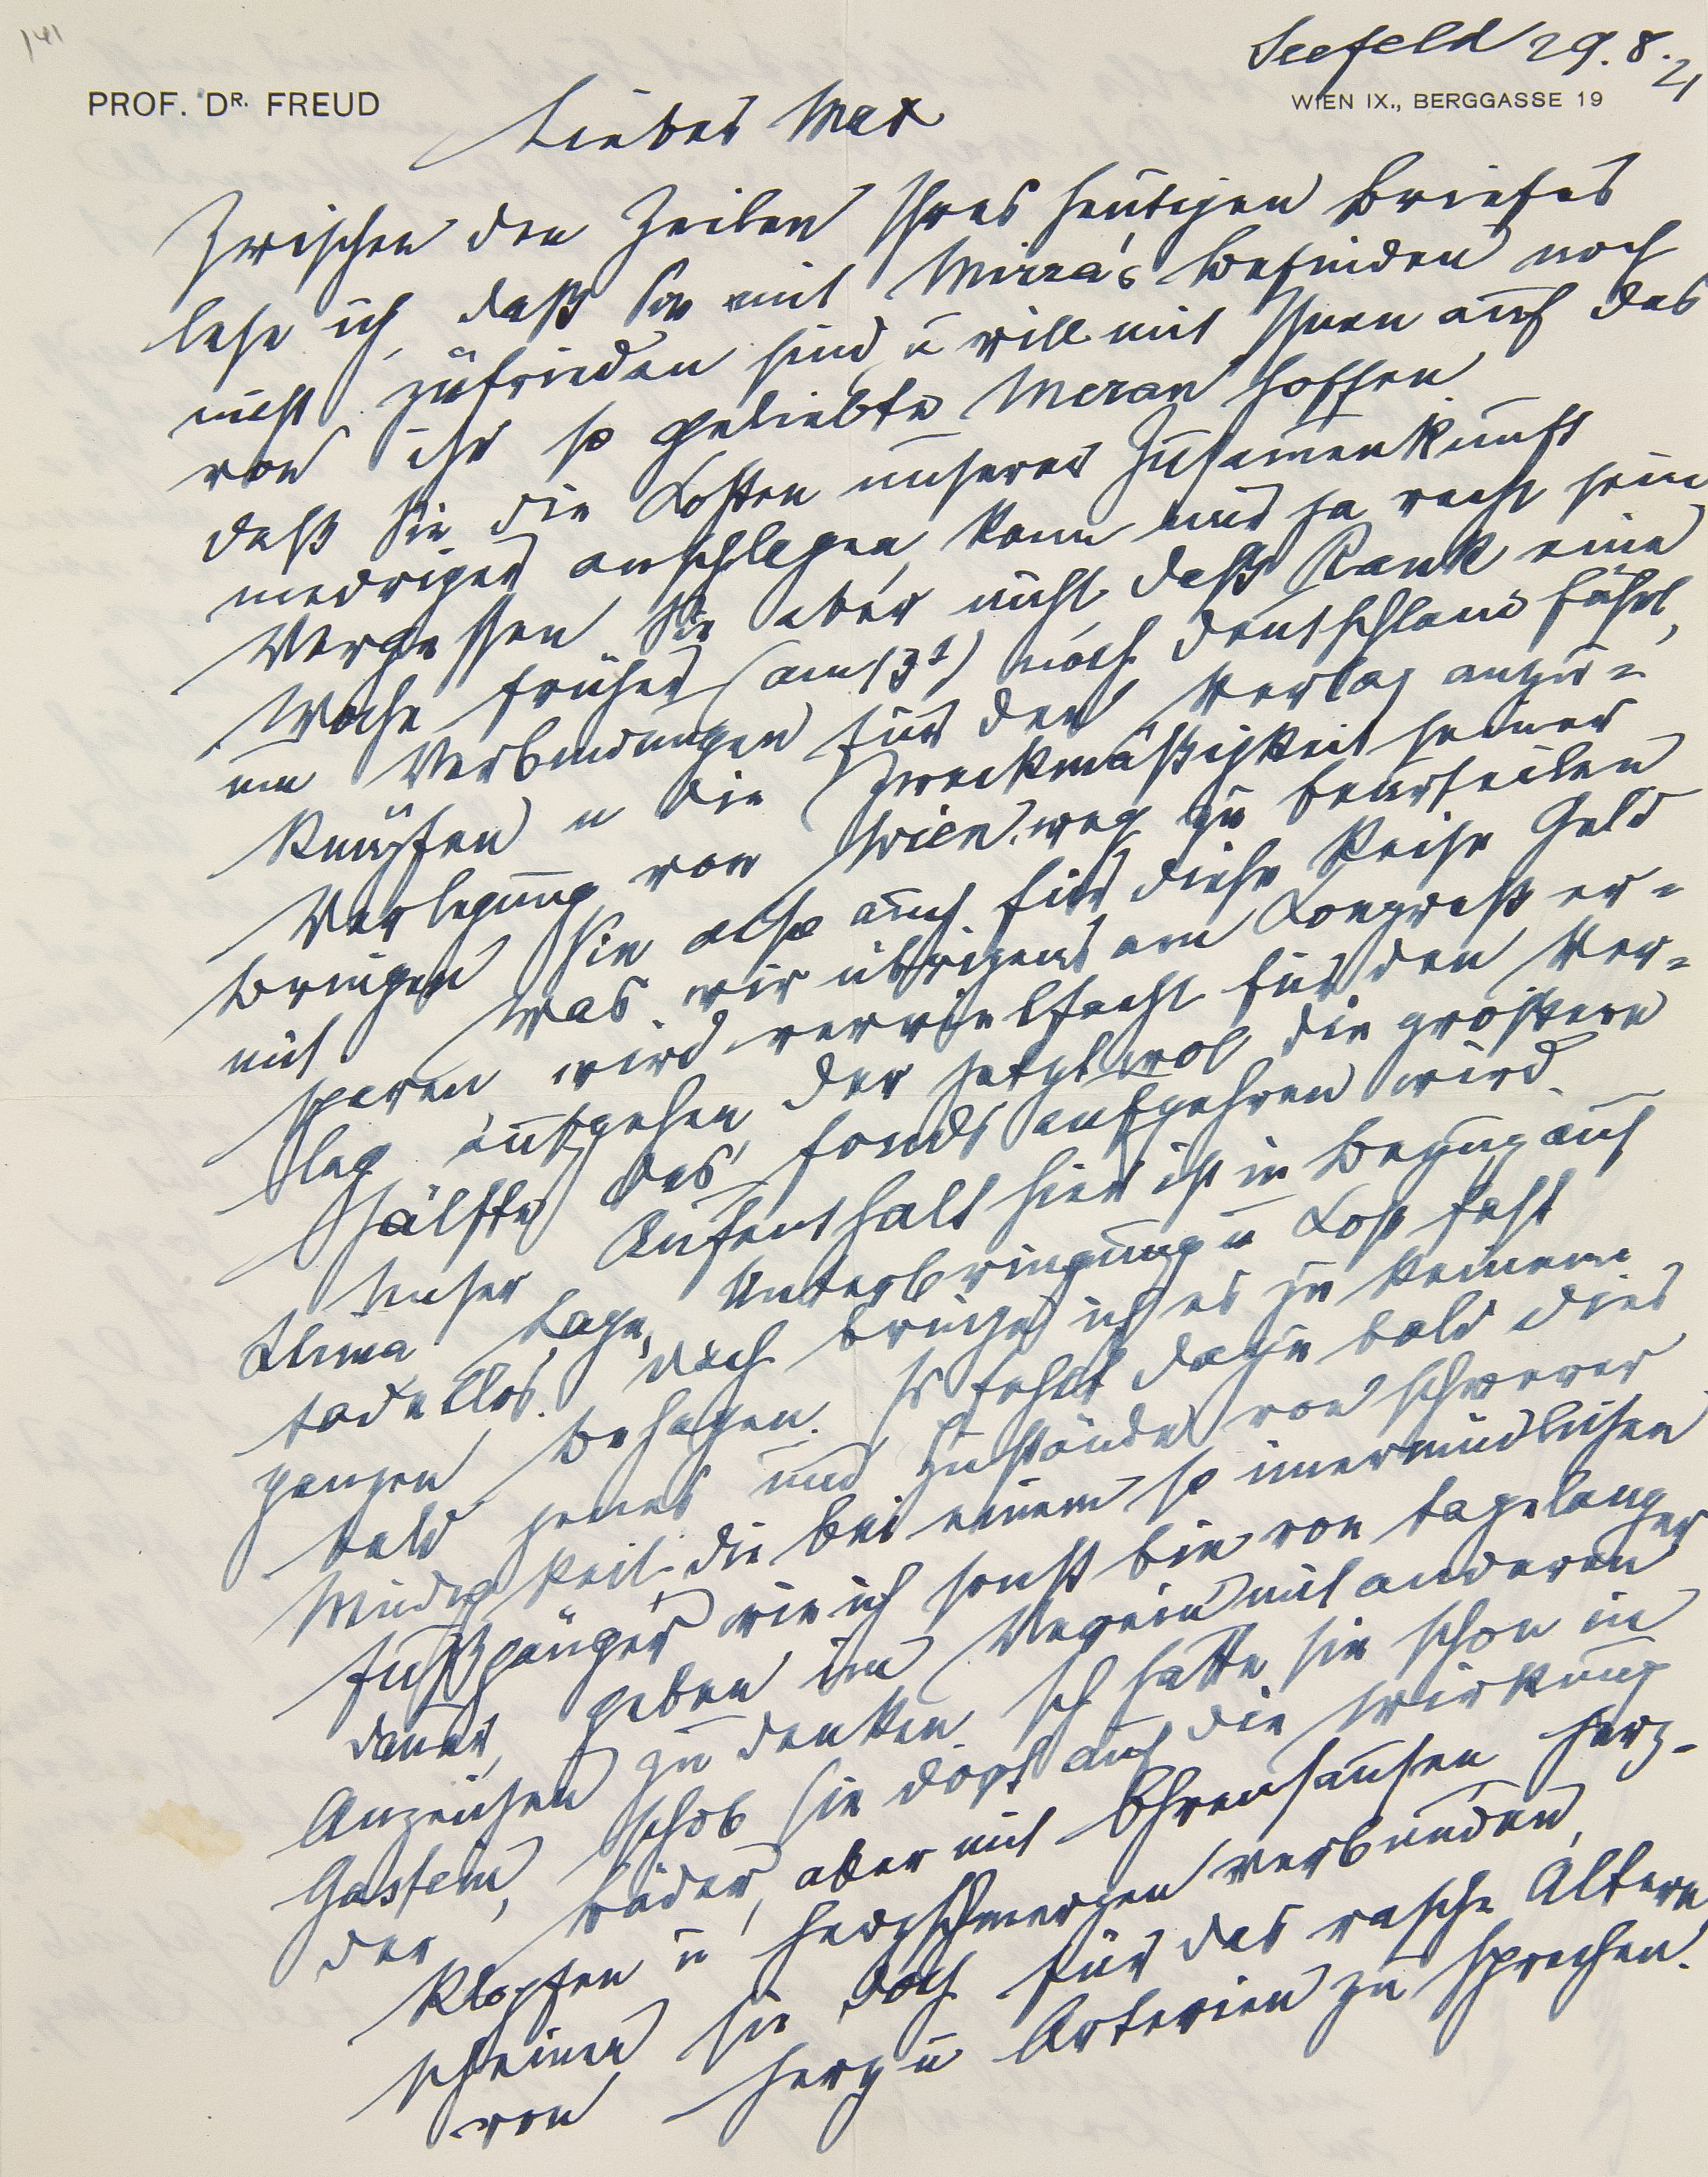 141
Seefeld 29.8.21
PROF. DR. FREUD
WIEN IX., BERGGASSE 19
Lieber Max
Zwischen den Zeilen Ihres heutigen Briefes
lese ich, daß Sie mit Mirra's Befinden noch
nicht zufrieden sind u will mit Ihnen auf das
von ihr so geliebte Meran hoffen
daß Sie die Kosten unserer Zusam̄enkunft
niedriger anschlagen, kann mir ja recht sein
Vergessen Sie aber nicht, daß Rank eine
Woche früher (am 13t) nach Deutschland fährt,
um Verbindungen für den Verlag anzu=
knüpfen u die Zweckmäßigkeit seiner
Verlegung von Wien weg zu beurteilen
Bringen Sie also auch für diese Reise Geld
mit. Was wir übrigens am Kongreß er=
sparen wird vervielfacht für den Ver=
lag aufgehen, der jetzt wol die größere
Hälfte des Fonds aufzehren wird.
Unser Aufenthalt hier ist in Bezug auf
Klima, Lage, Unterbringung u Kost fast
tadellos. Doch bringe ich es zu keinem
ganzen Behagen. Es fehlt dazu bald dies
bald jenes und Zustände von schwerer
Müdigkeit, die bei einem so unermüdlichen
Fußgänger wie ich sonst bin von tagelanger
Dauer, geben im Verein mit anderen
Anzeichen zu denken. Ich hatte sie schon in
Gastein, schob sie dort auf die Wirkung
der Bäder, aber mit Ohrensausen Herz-
klopfen u Herzschmerzen verbunden,
scheinen sie doch für das rasche Altern
von Herz u Arterien zu sprechen.